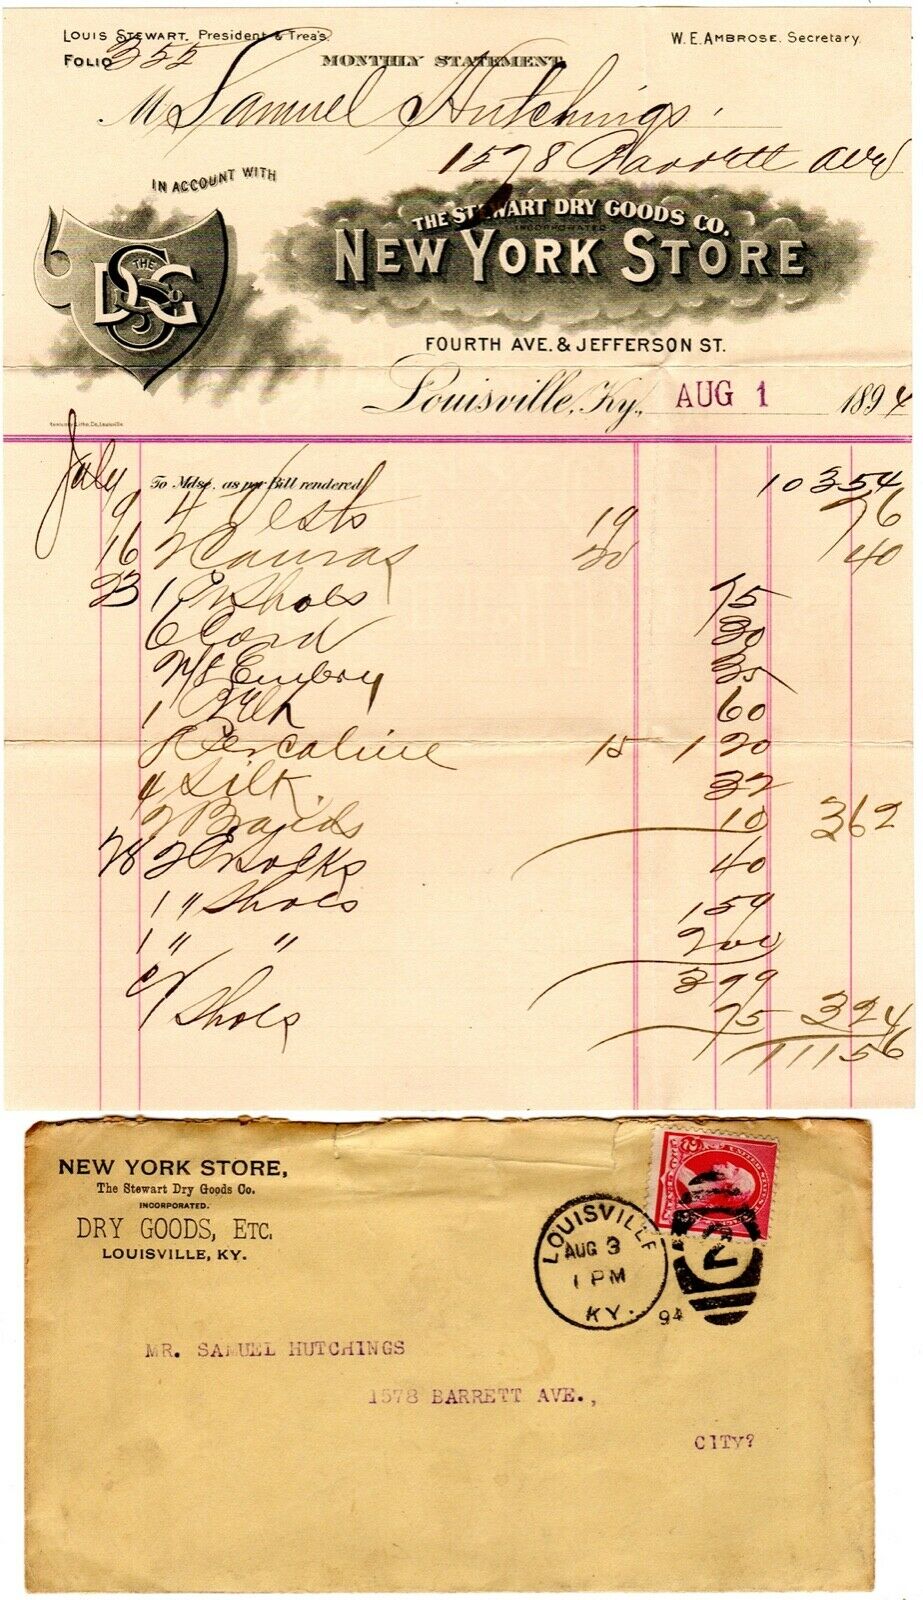 LOUIS STEWART. President & Treas.
W. E. AMBROSE. Secretary.
FOLIO 355
MONTHLY STATEMENT
M Samuel Hutchings.
1578 Barrett Ave
IN ACCOUNT WITH
THE STEWART DRY GOODS CO.
INCORPORATED
NEW YORK STORE
THE
DSGCo
FOURTH AVE. & JEFFERSON ST.
Louisville, Ky., AUG 1 1894
July To Mdse. as per Bill rendered 10354
9 4 Vests 19 76
16 2 Canvas 20 40
23 1 Pr Shoes 75
6 Cord 30
Embry 35
1 60
8 Percaline 15 1 20
4 Silk 32
2 Braids 10 362
28 2 Pr Socks 40
1 " Shoes 159
1 " " 200
399
Cr
1 Shoes 75 324
11156
NEW YORK STORE,
The Stewart Dry Goods Co.
INCORPORATED.
DRY GOODS, ETC.
LOUISVILLE, KY.
LOUISVILLE
AUG 3
1 PM
KY.
94
2
MR. SAMUEL HUTCHINGS
1578 BARRETT AVE.,
CITY?